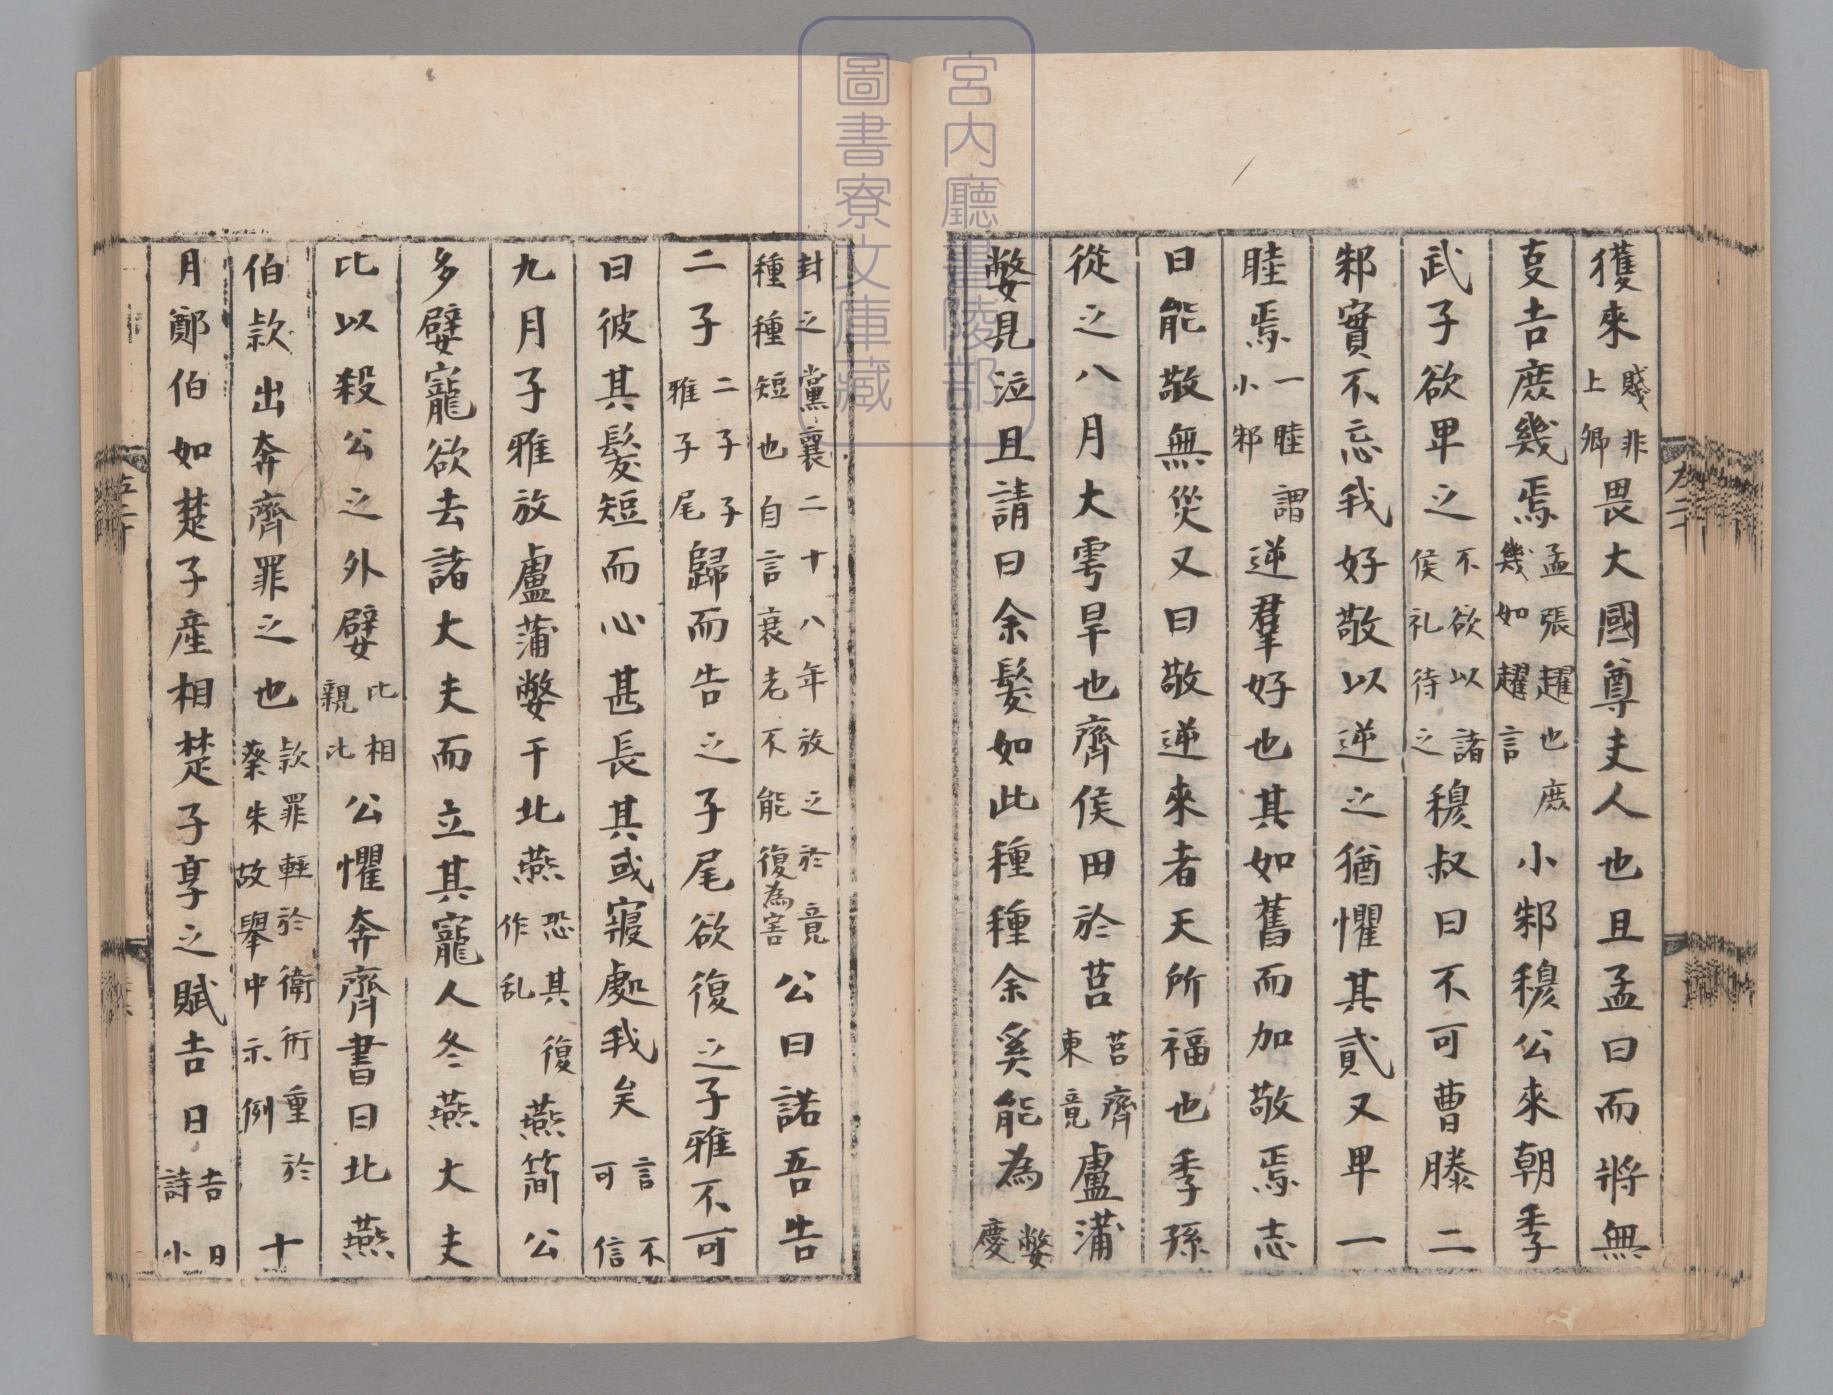 獲來賤非上卿畏大國尊夫人也且孟曰而將無
叓吉庶幾焉孟張趯也庶幾如趯言小邾穆公來朝季
武子欲卑之不欲以諸侯礼待之穆叔曰不可曹滕二
邾實不忘我好敬以逆之猶懼其貳又卑一
睦焉一睦謂小邾逆羣好也其如舊而加敬焉志
曰能敬無災又曰敬逆來者天所福也季孫
從之八月大雩旱也齊侯田於莒莒齊東竟盧蒲
嫳見泣且請曰余髮如此種種余奚能為嫳慶
封之黨襄二十八年放之於竟種種短也自言衰老不能復為害公曰諾吾告
二子二子子雅子尾歸而告之子尾欲復之子雅不可
曰彼其髮短而心甚長其或寢處我矣言不可信
九月子雅放盧蒲嫳于北燕恐其復作乱燕簡公
多嬖寵欲去諸大夫而立其寵人冬燕大夫
比以殺公之外嬖比相親比公懼奔齊書曰北燕
伯款出奔齊罪之也款罪輕於衛衎重於蔡朱故舉中示例十
月鄭伯如楚子產相楚子享之賦吉日吉日詩小
宮内廳書陵部
圖書寮文庫藏